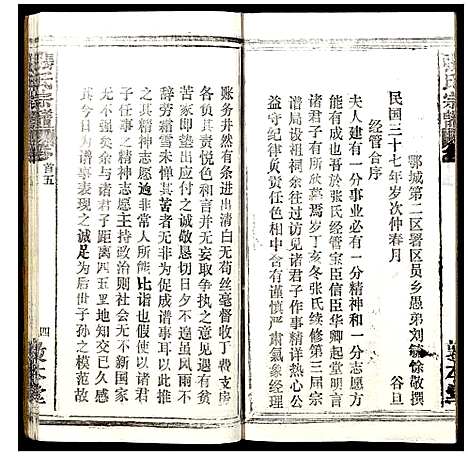 鄂城第二区署区员乡愚弟刘毓徐敬撰
民国三十七年岁次仲春月　谷旦
经管合序
夫人建有一分事业必有一分精神和一分志愿方
能有成功愚于张氏经管宝臣信臣华卿起堂明言
诸君子有所欣慕焉岁丁亥冬张氏续修第三届宗
谱局设祖祠余往过访见诸君子作事精详热心公
益守纪律负责任色相中含有谨慎严肃气象经理
账务井然有条进出清白无苟丝毫督收丁费支房
各负其责悦色和言并无妄取争执之意见遇有贫
苦家即垫出应付之诚敬恳切日夕不遑虽风雨不
辞劳霜雪未惮其苦者无不期促成谱事耳以此推
之其精神志愿逾非常人所能比谐也假使以诸君
子任事之精神志愿主持政治则社会国家前途进
展犹无疆矣余与诸君子距离四五里地知交已久感
其今日为谱事表现之诚足为后世子孙之模范故
张氏宗谱
首五
四
敦本堂
张氏宗谱